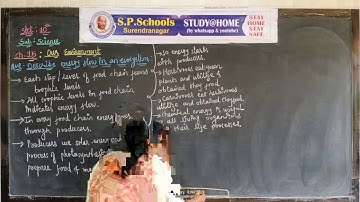 S.P.Schools
Surendranagar
STUDY@HOME
(by whatsapp & youtube)
STAY
HOME
STAY
SAFE
Std : 10
Sub : Science
Ch : 15 : Our Environment
Que : Describe energy flow in an ecosystem :
Each step / level of food chain forms
trophic levels
All trophic levels in food chain
indicates energy flow.
In every food chain energy flows
through producers.
Producers use solar energy
process of photosynthesis
prepare food
so energy starts
with producers.
Herbivores eat green
plants and utilize &
obtained they food
Carnivores eat herbivores
utilize and obtained they food
chemical energy is used
all living organisms
their life processes